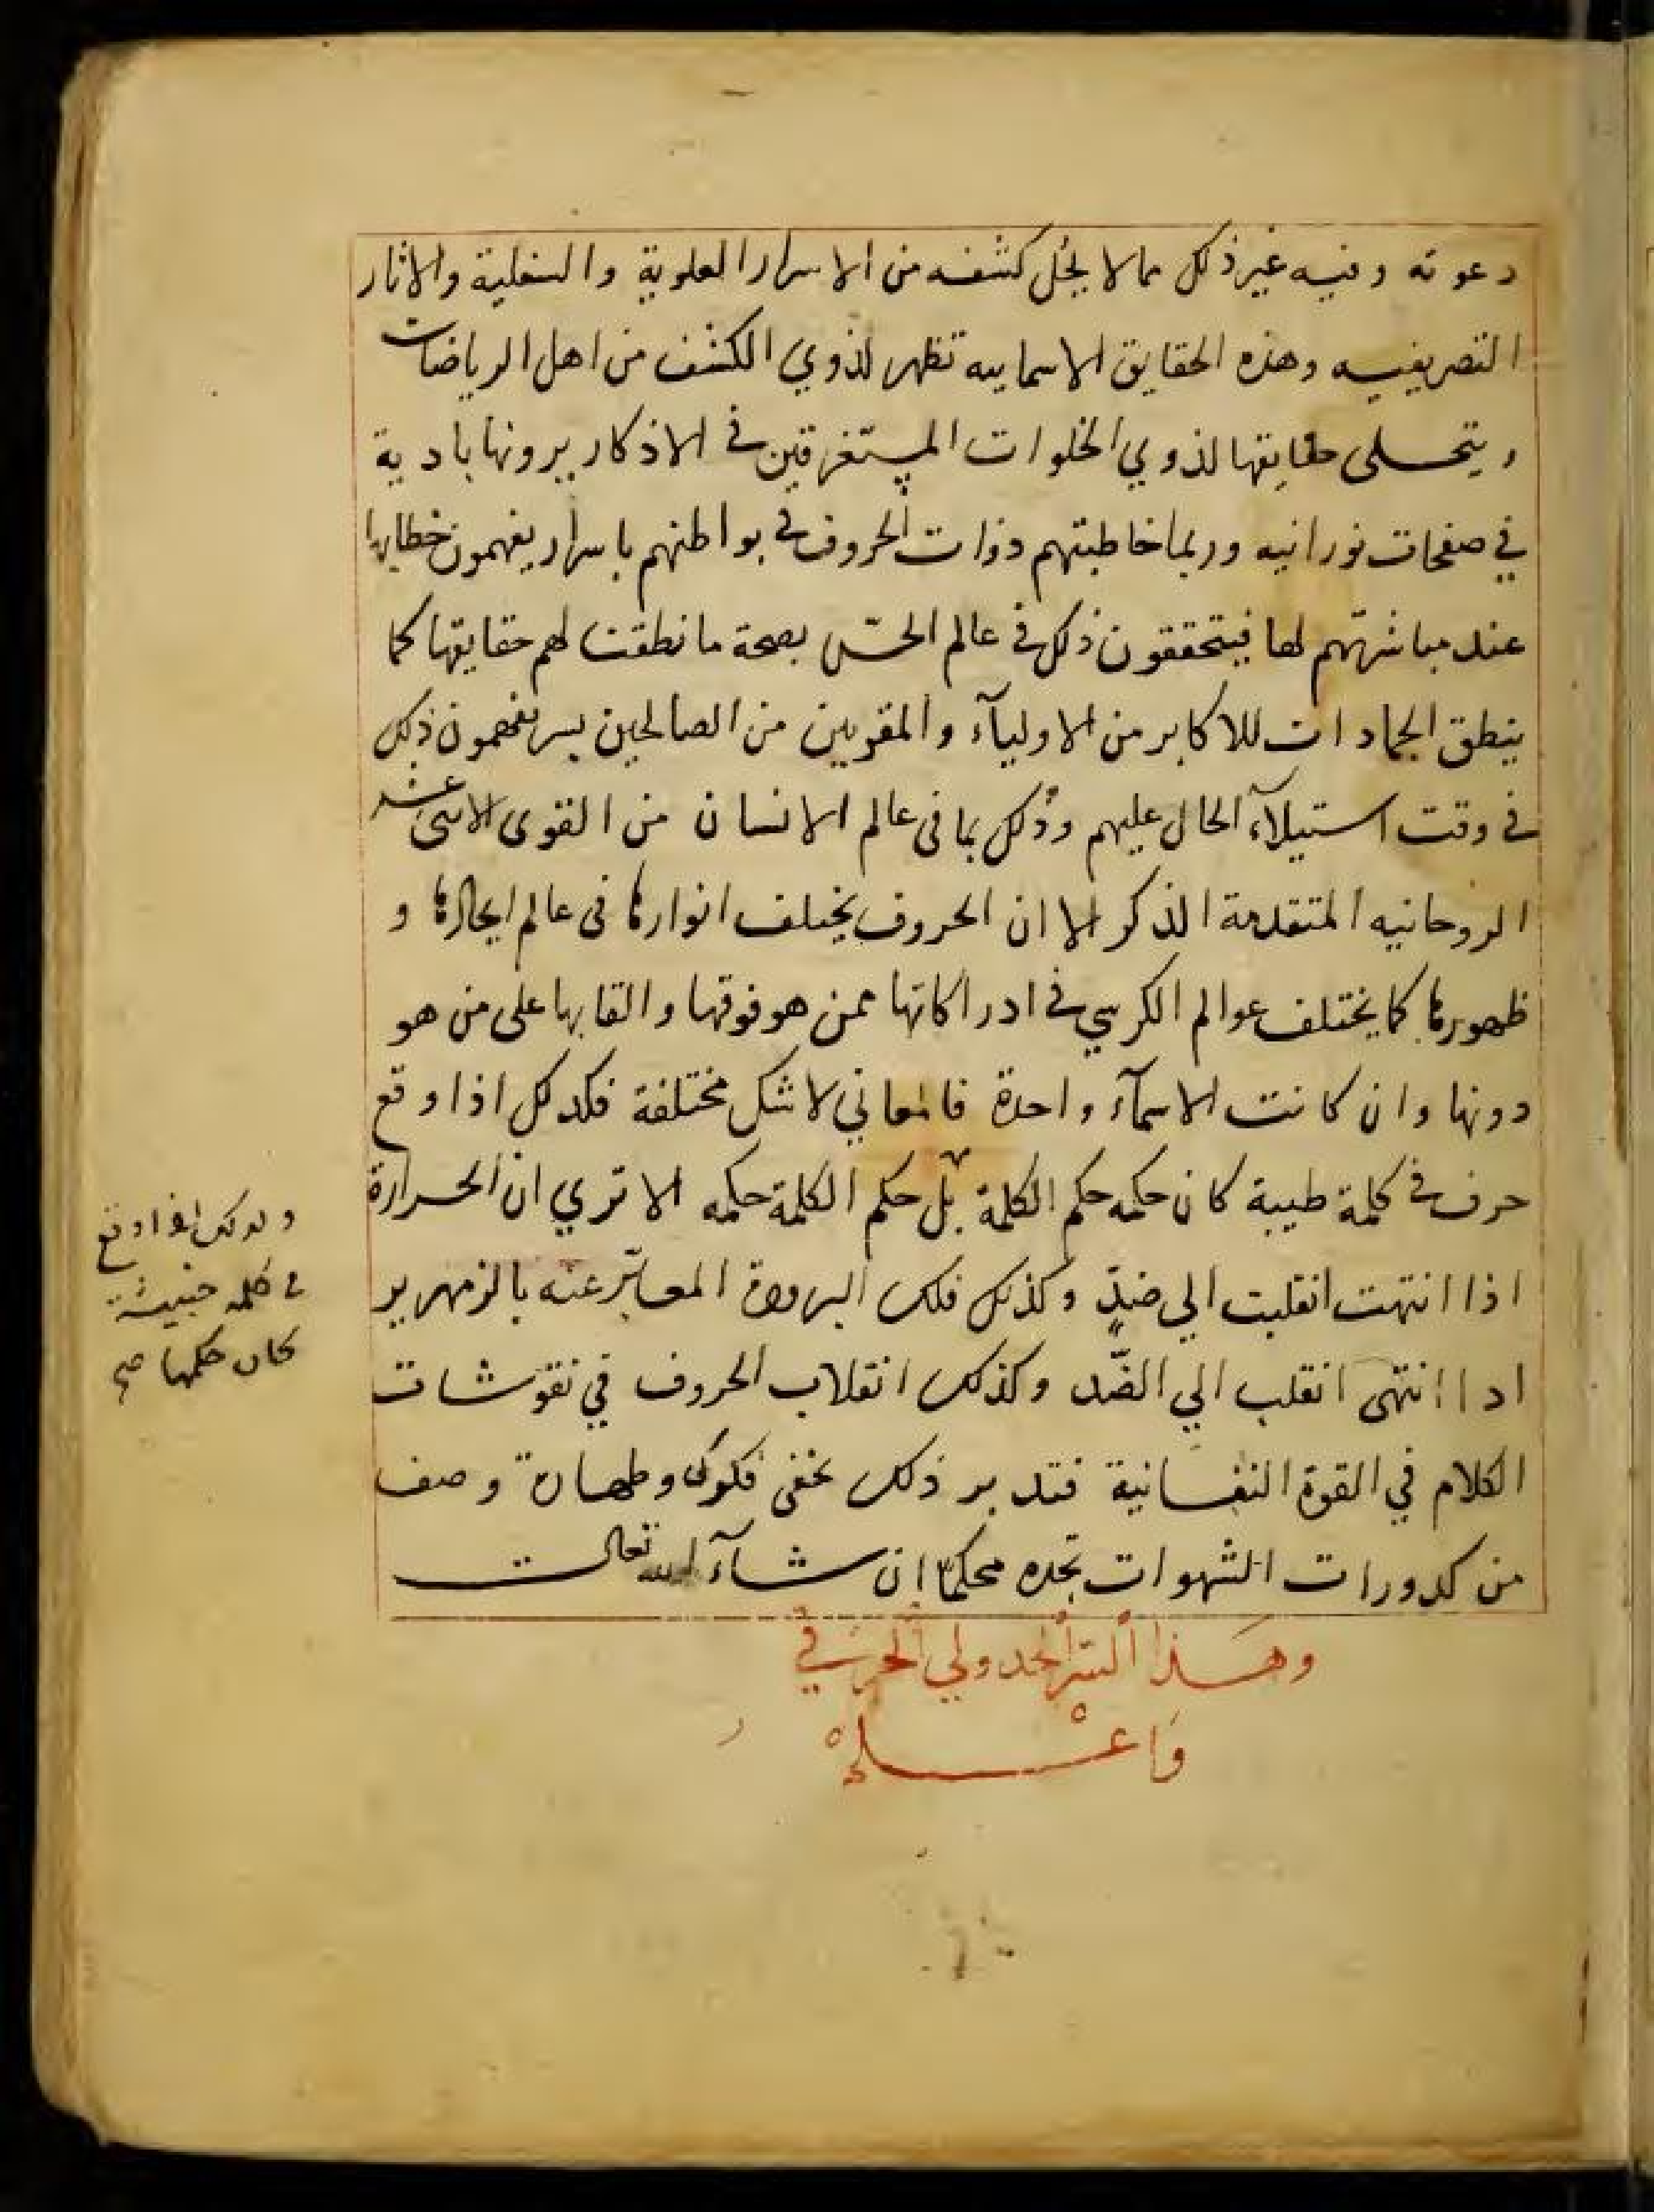 دعوته وفيه غير ذلك مما لا يحل كشفه من الاسرار العلوية والسفلية والاثار
التصريفيه وهذه الحقايق الاسماييه تظهر لذوي الكشف من اهل الرياضات
ويتجلى حقايقها لذوي الخلوات المستغرقين في الاذكار يرونها بادية
في صفحات نورانيه وربما خاطبتهم ذوات الحروف في بواطنهم باسرار يفهمون خطابها
عند مباشرتهم لها فيتحققون ذلك في عالم الحسّ بصحة ما نطقت لهم حقايقها كما
ينطق الجمادات للاكابر من الاوليآء والمقربين من الصالحين بسر يفهمون ذلك
في وقت استيلآء الحال عليهم وذلك بما في عالم الانسان من القوى الاثنى عشر
الروحانيه المتقدمة الذكر الا ان الحروف يختلف انوارها في عالم ايجادها و
ظهورها كما يختلف عوالم الكرسي في ادراكاتها عمن هو فوقها والقايها على من هو
دونها وان كانت الاسمآء واحدة فالمعاني لا شك مختلفة فكذلك اذا وقع
حرف في كلمة طيبة كان حكمه حكم الكلمة بل حكم الكلمة حكمه الا تري ان الحرارة
اذا انتهت انقلبت الي ضدٍّ وكذلك فلك البرودة المعبّر عنه بالزمهرير
ادا انتهى انقلب الي الضّد وكذلك انقلاب الحروف في نقوشات
الكلام في القوة النفسانية فتدبر ذلك بخفى فكرك وطهارة وصف
من كدورات الشهوات تجده محكمًا ان شآء الله تعالى
وهذا السر الجدولي الحرفي
وَاعْلمْ
وكذلك اذا وقع
في كلمه خبيثة
كان حكمها صح